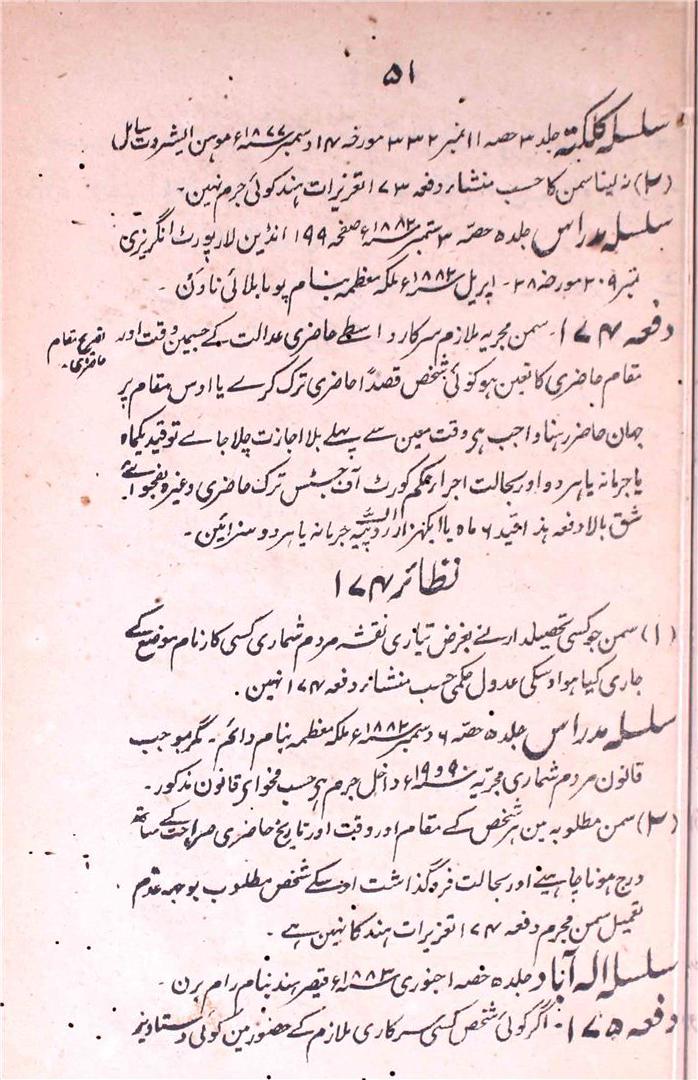 ۵۱
سلسلہ کلکتہ جلد ۳ حصہ ۱۱ نمبر ۳۳۲ مورخہ ۱۴ دسمبر ۱۸۷۷ء موہن
(۲) نہ لینا سمن کا حسب منشاء دفعہ ۱۷۳ تعزیرات ہند کوئی جرم نہین۔
سلسلہ مدراس جلد ۵ حصہ ۳ ستمبر ۱۸۸۲ء صفحہ ۱۹۹ انڈین لا رپورٹ انگریزی
نمبر ۲۰۹ مورخہ ۲۸۔ اپریل ۱۸۸۲ء ملکہ معظمہ بنام
دفعہ ۱۷۴۔ سمن مجریہ ملازم سرکار واسطے حاضری عدالت کے جسمین وقت اور
حاضری۔
مقام حاضری کا تعین ہو کوئی شخص قصداً حاضری ترک کرے یا اوس مقام پر
جہان حاضر رہنا واجب ہی وقت معین سے پہلے بلا اجازت چلا جاے تو قید یکماہ
یا جرمانہ یا ہر دو اور بحالت اجراء حکم کورٹ آف جسٹس ترک حاضری وغیرہ بفحوائے
شق بالا دفعہ ہذا قید ۶ ماہ یا ایکہزار روپیہ جرمانہ یا ہر دو سزائین۔
نظائر ۱۷۴
(۱) سمن جو کسی تحصیلدار نے بغرض تیاری نقشہ مردم شماری کسی کارنام موضع کے
جاری کیا ہو اوسکی عدول حکمی حسب منشاء دفعہ ۱۷۴ نہین۔
سلسلہ مدراس جلد ۵ حصہ ۶ دسمبر ۱۸۸۲ء ملکہ معظمہ بنام۔ مگر بموجب
قانون مردم شماری مجریہ داخل جرم ہی حسب فحوای قانون مذکور۔
(۲) سمن مطلوبہ مین ہر شخص کے مقام اور وقت اور تاریخ حاضری صراحت کے ساتھ
درج ہونا چاہیئے اور بحالت فروگذاشت اوسکے شخص مطلوب بوجہ عدم
تعمیل سمن مجرم دفعہ ۱۷۴ تعزیرات ہند کا نہین ہے۔
سلسلہ الہ آباد جلد ۵ حصہ ۱ جنوری ۱۸۸۳ء قیصر ہند بنام رام برن۔
دفعہ ۱۷۵۔ اگر کوئی شخص کسی سرکاری ملازم کے حضور مین کوئی دستاویز